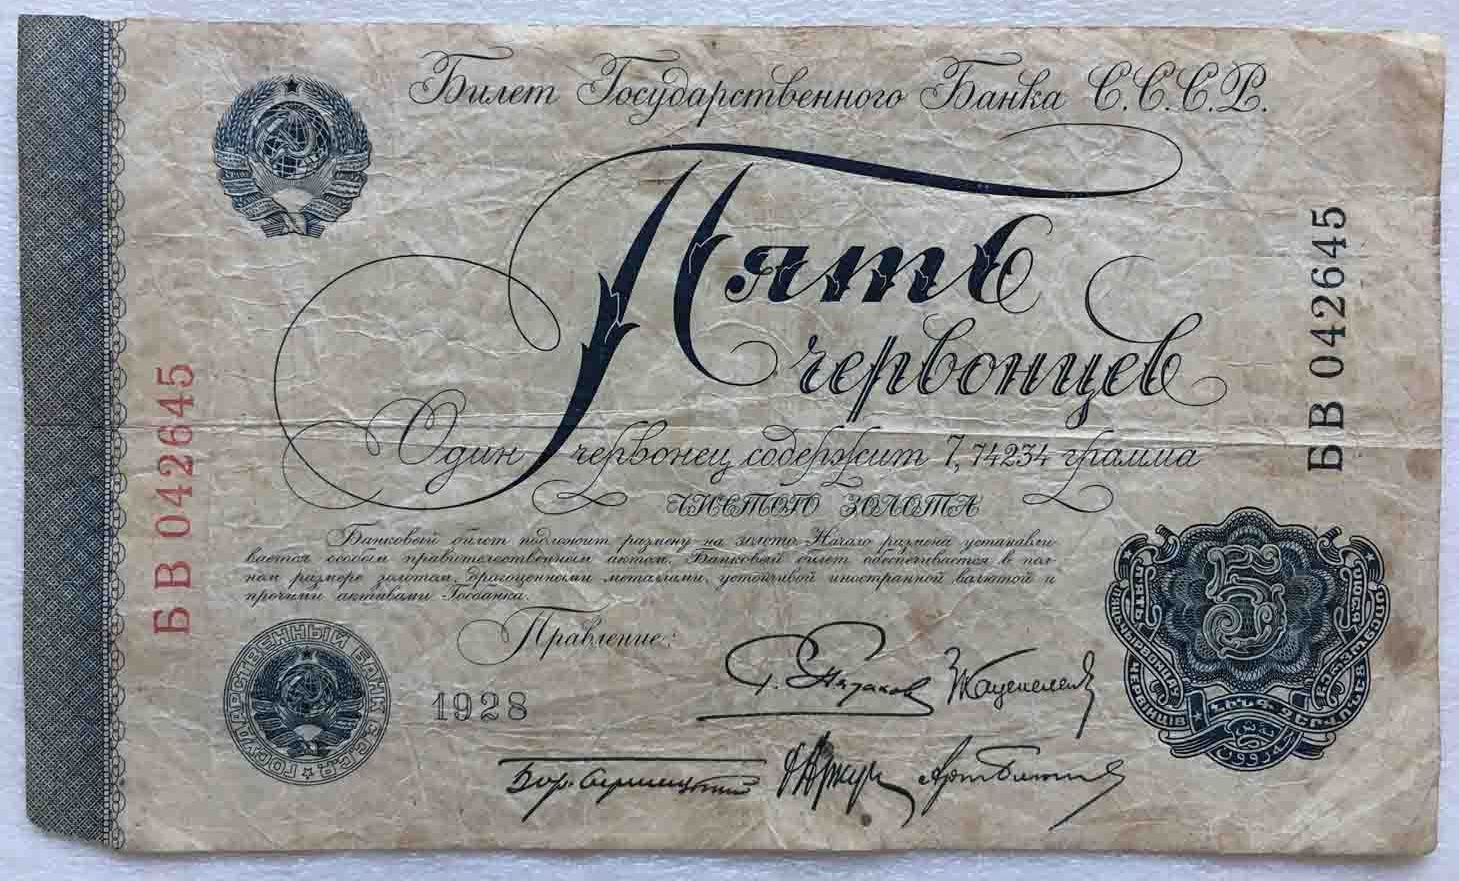 Билет Государственного Банка С.С.С.Р.
Пять
червонцев
Один червонец содержит 7,74234 грамма
ЧИСТОГО ЗОЛОТА
Банковый билет подлежит размену на золото. Начало размена устанавли-
вается особым правительственным актом. Банковый билет обеспечивается в пол-
ном размере золотом, драгоценными металлами, устойчивой иностранной валютой и
прочими активами Госбанка.
Правление:
1928
БВ 042645
БВ 042645
ГОСУДАРСТВЕННЫЙ БАНК С.С.С.Р.
5
ПЯТЬ
ЧЕРВОНЦЕВ
ՀԻՆԳ ՉԵՐՎՈՆԵՑ